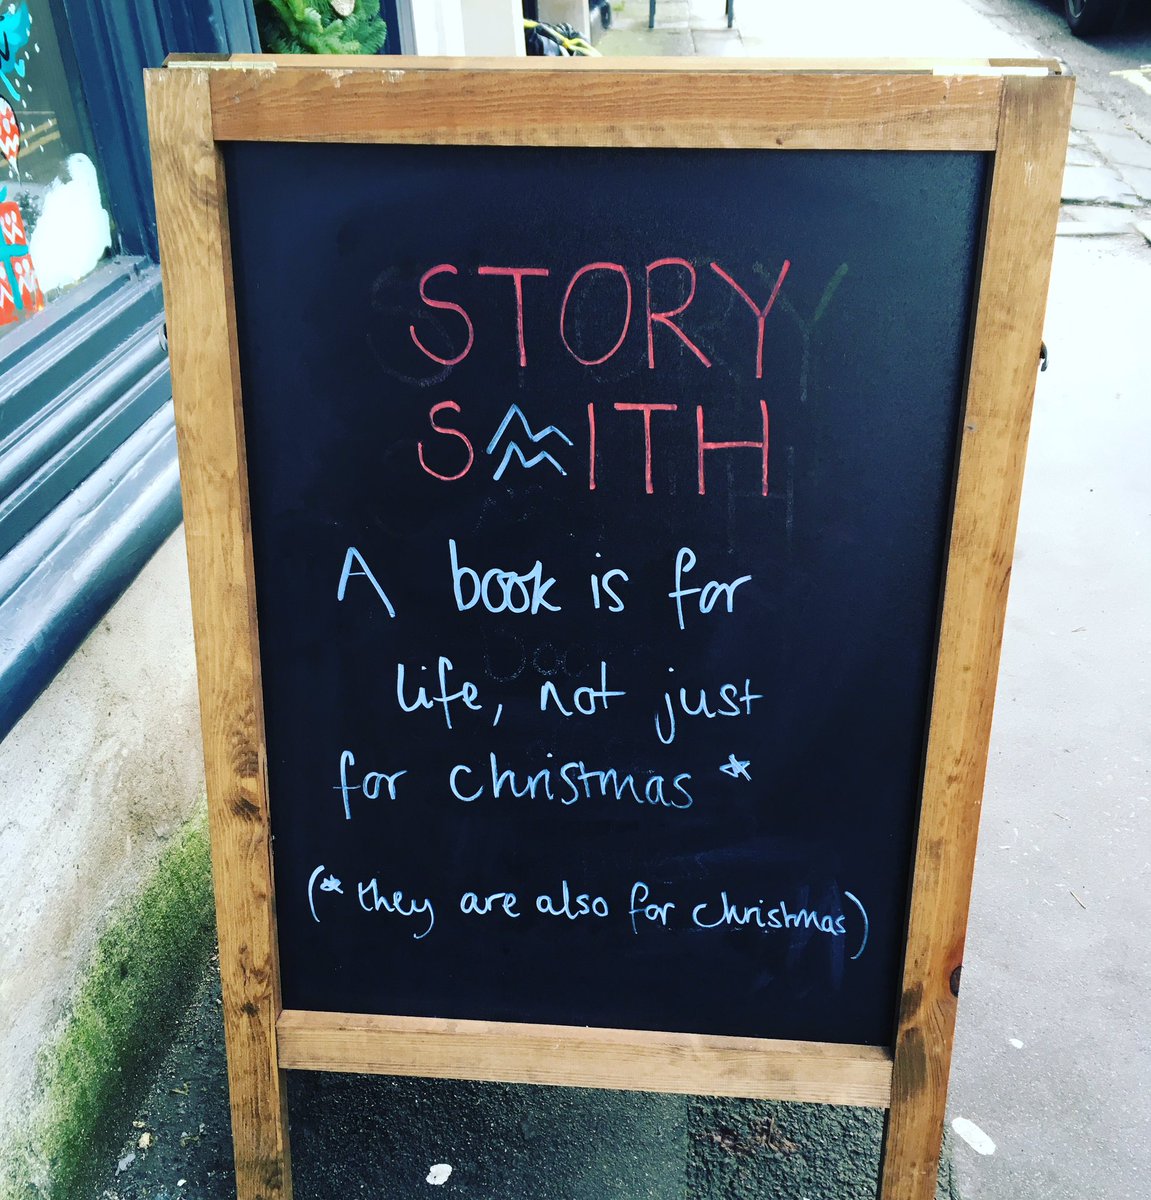 STORY
SMITH
A book is for
life, not just
for christmas *
(* they are also for christmas)